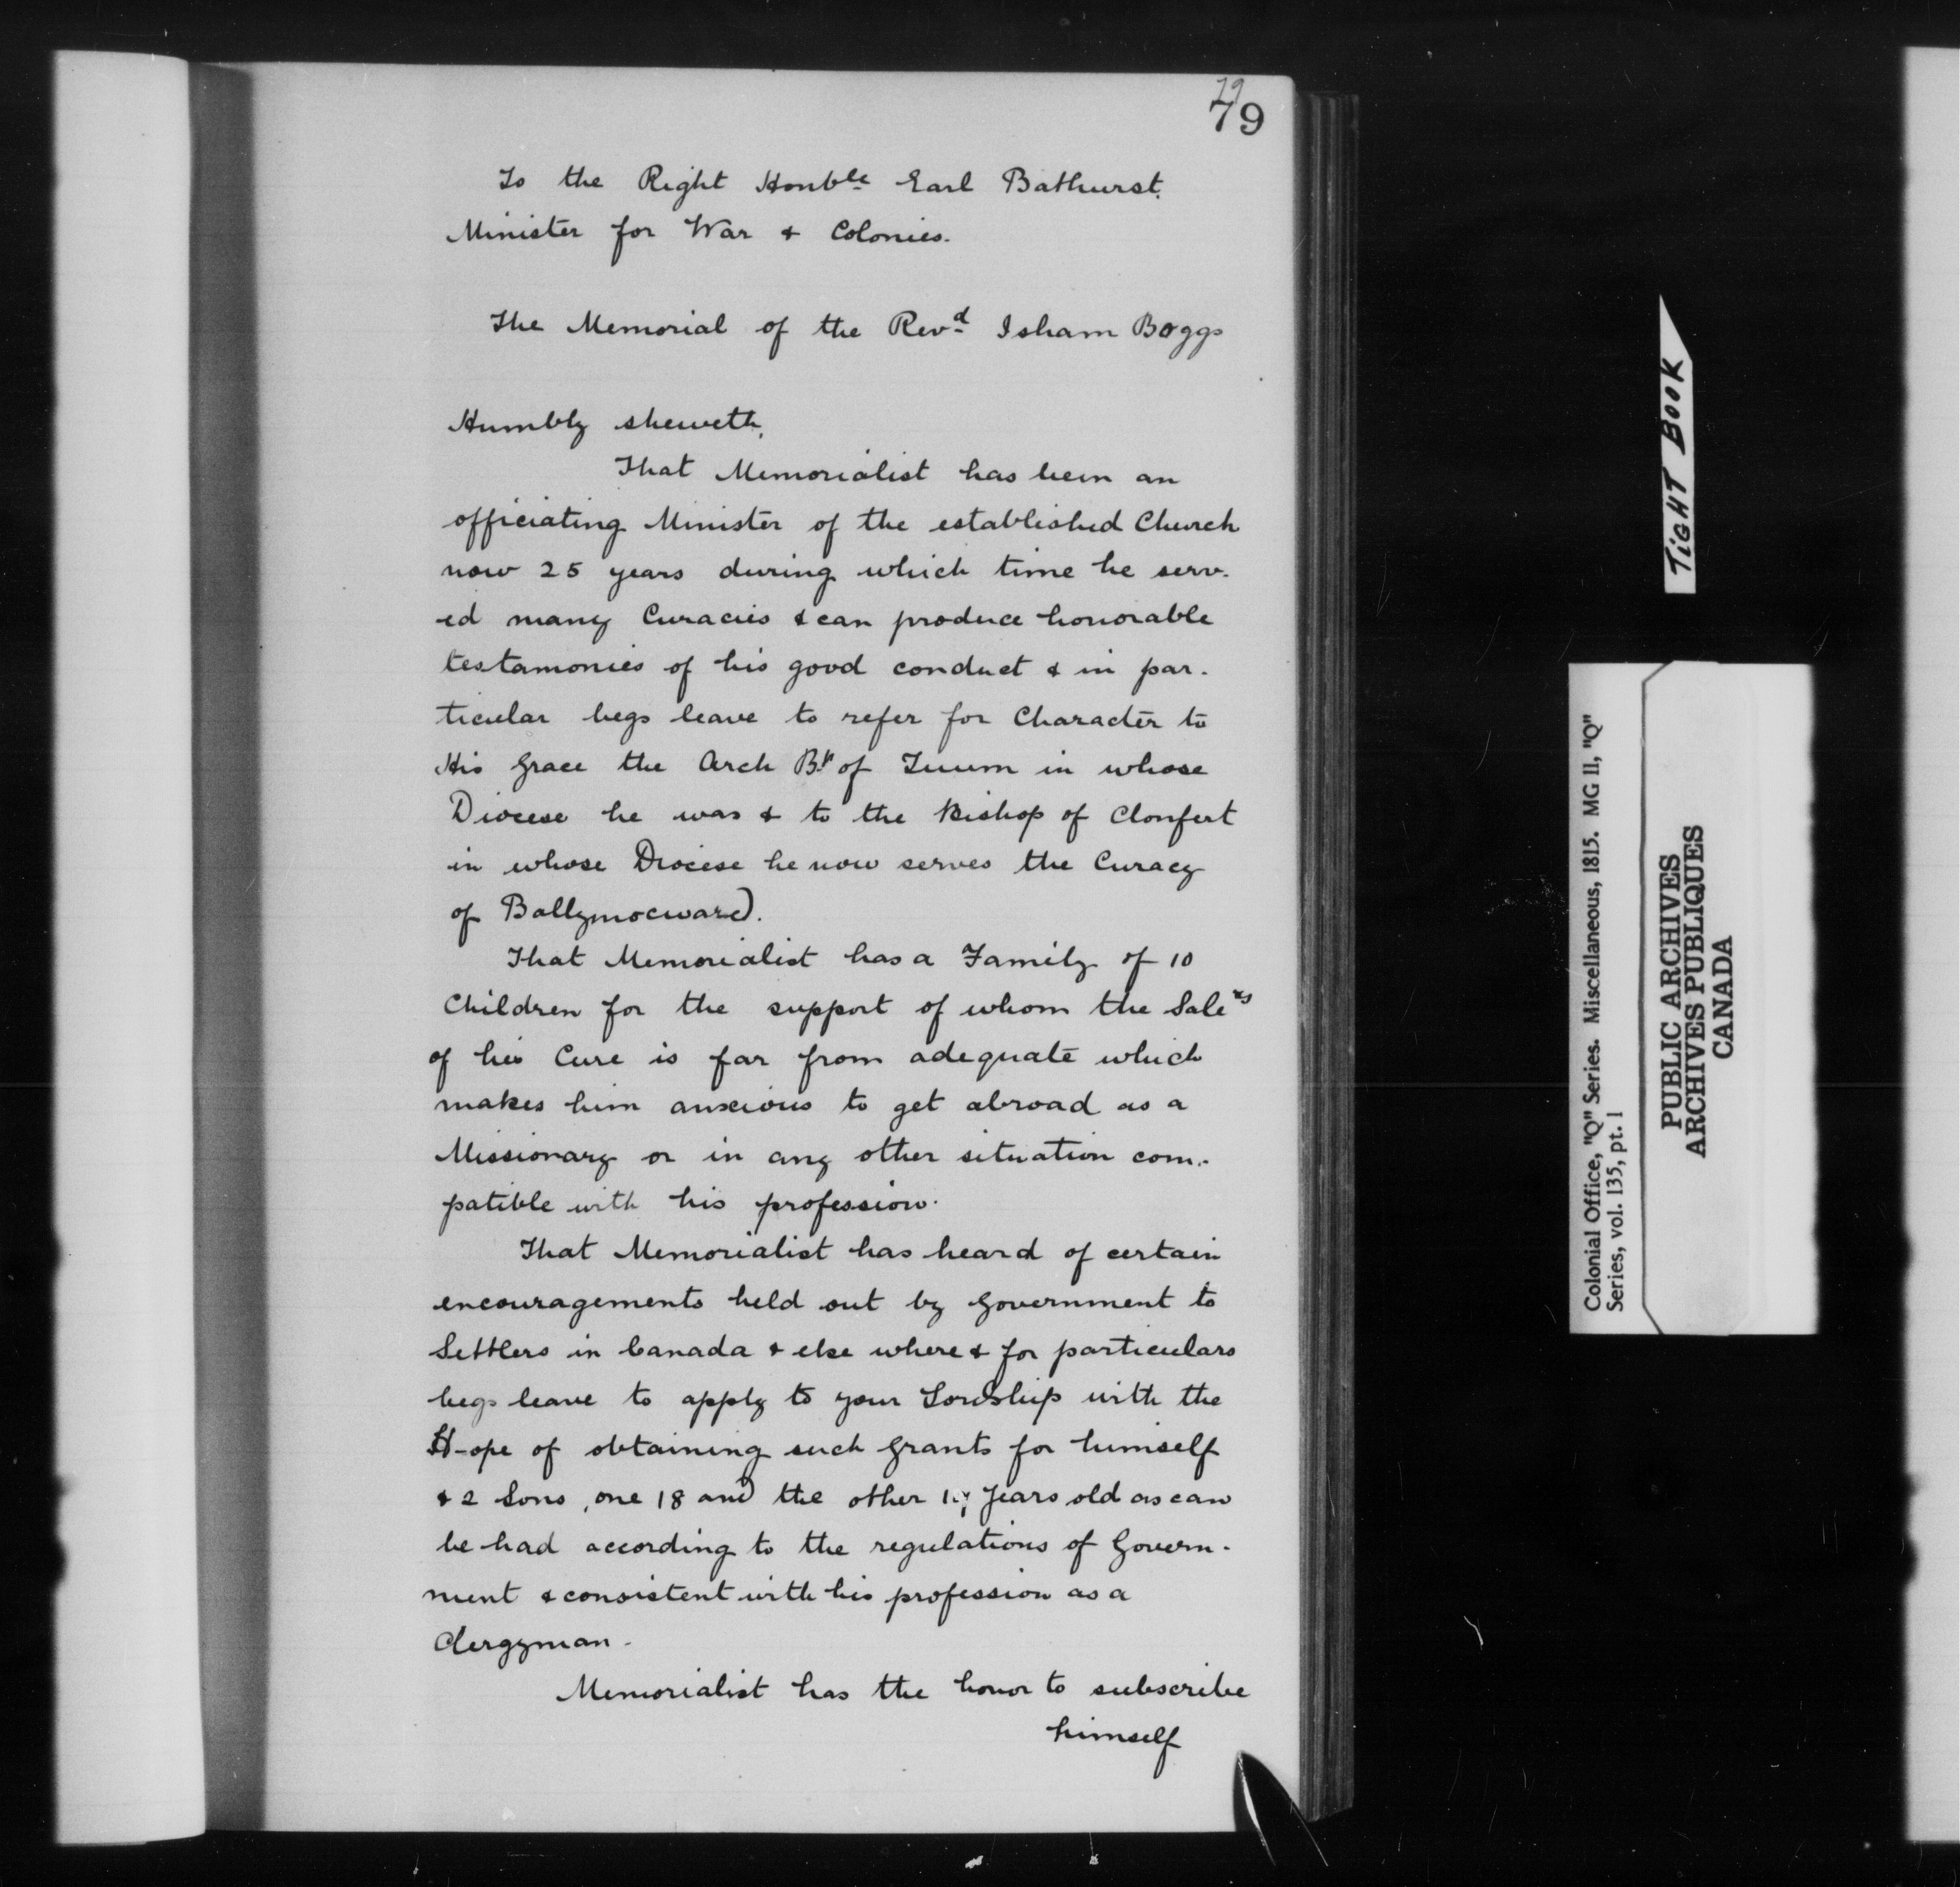 79
79
To the Right Honble Earl Bathurst.
Minister for War & Colonies.
The Memorial of the Revd Isham Boggs
Humbly sheweth,
That Memorialist has been an
officiating Minister of the established Church
now 25 years during which time he serv-
ed many Curacies & can produce honorable
testamonies of his good conduct & in par-
ticular begs leave to refer for Character to
His Grace the Arch Bp of Tuum in whose
Diocese he was & to the Bishop of Clonfert
in whose Diocese he now serves the Curacy
of Ballymacward.
That Memorialist has a Family of 10
Children for the support of whom the
of his Cure is far from adequate which
makes him anxious to get abroad as a
Missionary or in any other situation com-
patible with his profession.
That Memorialist has heard of certain
encouragements held out by Government to
Settlers in Canada & else where & for particulars
begs leave to apply to your Lordship with the
Hope of obtaining such grants for himself
& 2 Sons, one 18 and the other years old as can
be had according to the regulations of Govern-
ment & consistent with his profession as a
Clergyman.
Memorialist has the honor to subscribe
himself
TIGHT BOOK
Colonial Office, "Q" Series. Miscellaneous, 1815. MG 11, "Q"
Series, vol. 135, pt. 1
PUBLIC ARCHIVES
ARCHIVES PUBLIQUES
CANADA